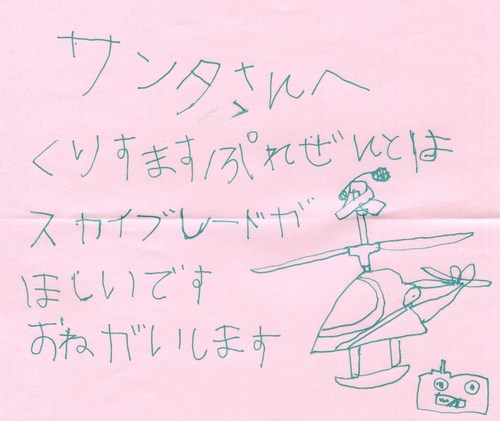 サンタさんへ
くりすますぷれぜんとは
スカイブレードが
ほしいです
おねがいします